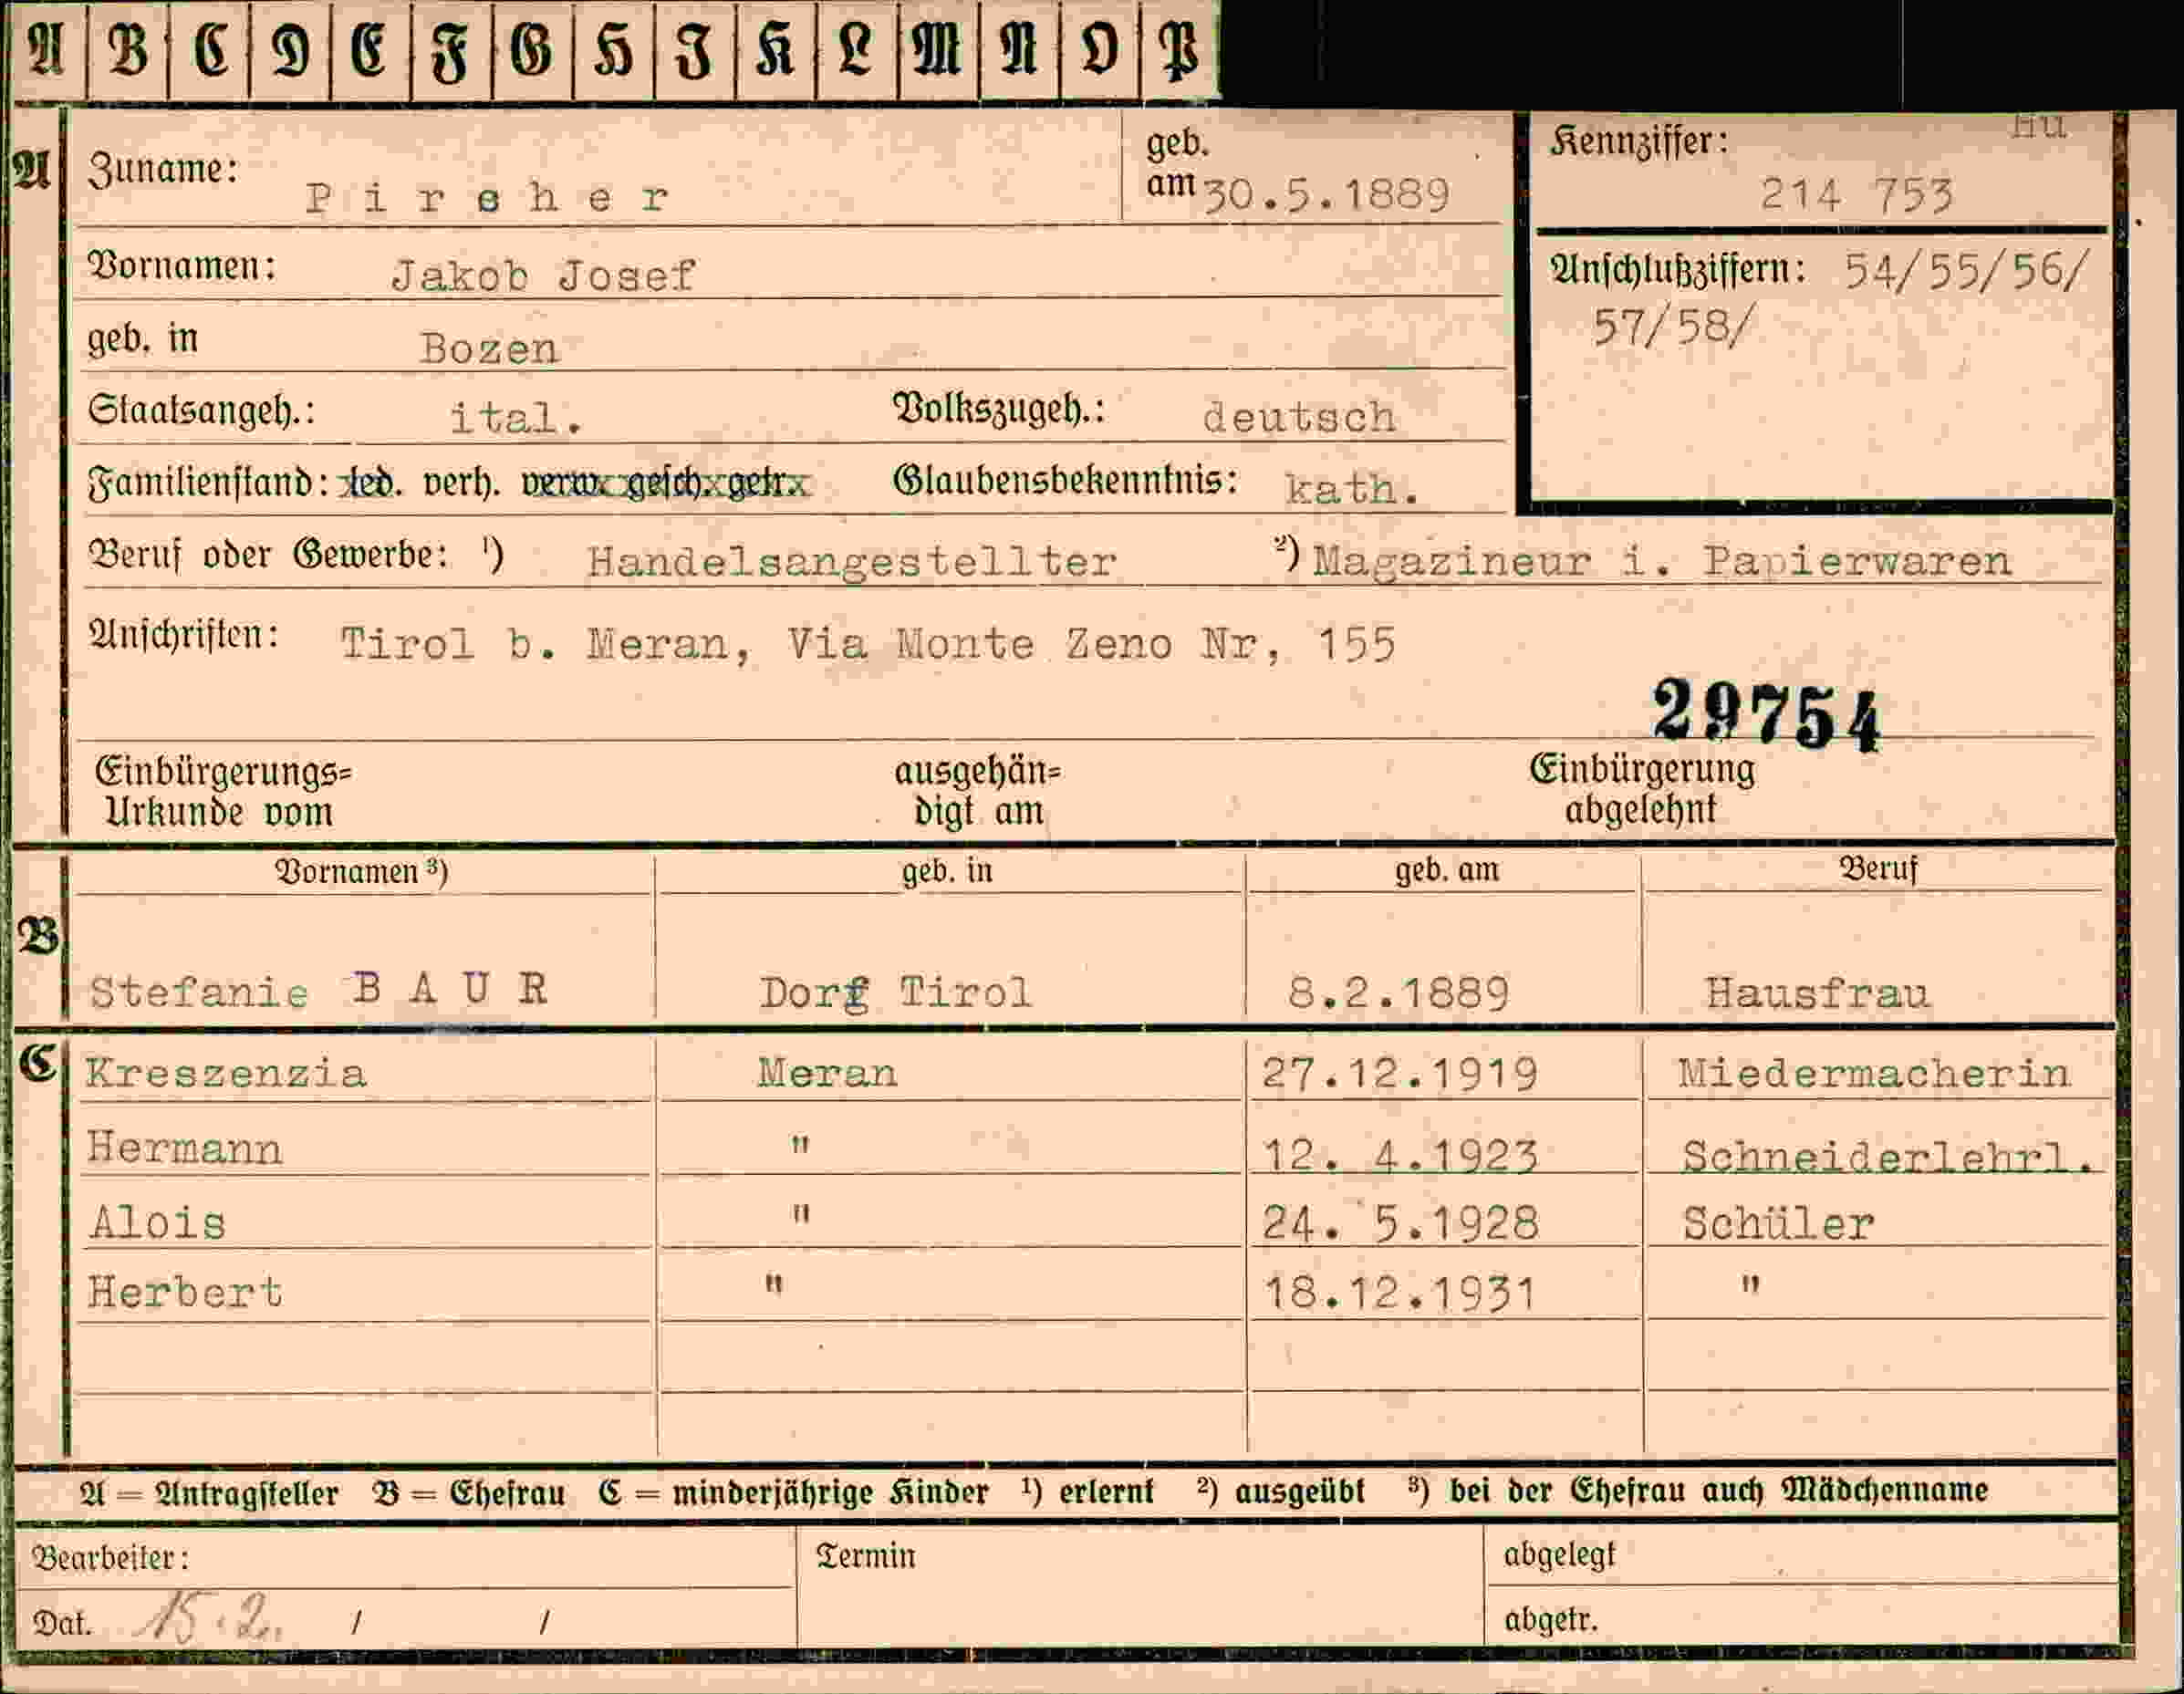 A B C D E F G H J K L M N O P
A Zuname: Pircher geb. am 30.5.1889 Kennziffer: 214 753
Vornamen: Jakob Josef Anschlußziffern: 54/55/56/
57/58/
geb. in Bozen
Staatsangeh.: ital. Volkszugeh.: deutsch
Familienstand: led. verh. verw. gesch. getr. Glaubensbekenntnis: kath.
Beruf oder Gewerbe: ¹) Handelsangestellter ²) Magazineur i. Papierwaren
Anschriften: Tirol b. Meran, Via Monte Zeno Nr, 155
29754
Einbürgerungs= ausgehän= Einbürgerung
Urkunde vom digt am abgelehnt
Vornamen ³) geb. in geb. am Beruf
B
Stefanie BAUR Dorf Tirol 8.2.1889 Hausfrau
C Kreszenzia Meran 27.12.1919 Miedermacherin
Hermann " 12. 4.1923 Schneiderlehrl.
Alois " 24. 5.1928 Schüler
Herbert " 18.12.1931 "
A = Antragsteller B = Ehefrau C = minderjährige Kinder ¹) erlernt ²) ausgeübt ³) bei der Ehefrau auch Mädchenname
Bearbeiter: Termin abgelegt
Dat. 15.2. / / abgetr.